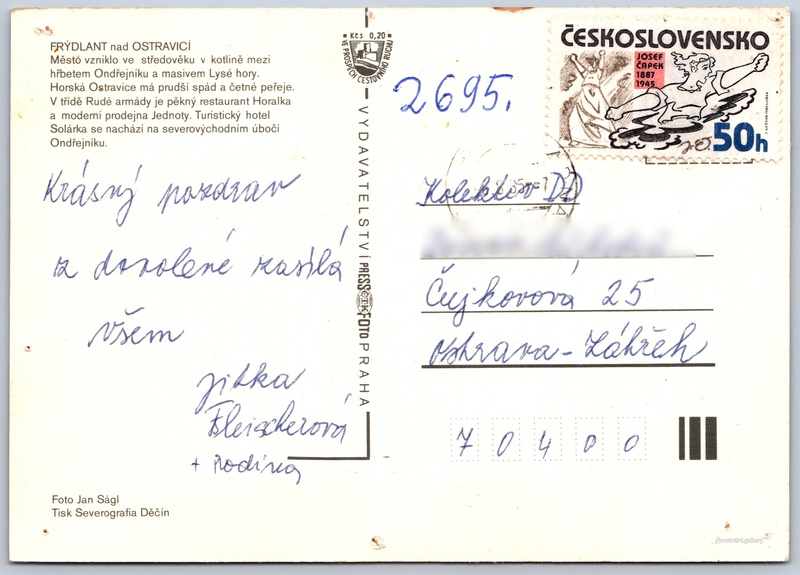 FRÝDLANT nad OSTRAVICÍ
Město vzniklo ve středověku v kotlině mezi
hřbetem Ondřejníku a masivem Lysé hory.
Horská Ostravice má prudší spád a četné peřeje.
V třídě Rudé armády je pěkný restaurant Horalka
a moderní prodejna Jednoty. Turistický hotel
Solárka se nachází na severovýchodním úbočí
Ondřejníku.
Krásný pozdrav
z dovolené zasílá
všem
Jitka
Fleischerová
+ rodina
Foto Jan Ságl
Tisk Severografia Děčín
Kčs 0,20
VE PROSPĚCH CESTOVNÍHO RUCHU
VYDAVATELSTVÍ PRESSFOTO PRAHA
ČTK
2695.
ČESKOSLOVENSKO
JOSEF
ČAPEK
1887
1945
50h
Kolektiv DD
Čujkovová 25
Ostrava-Zábřeh
7 0 4 0 0